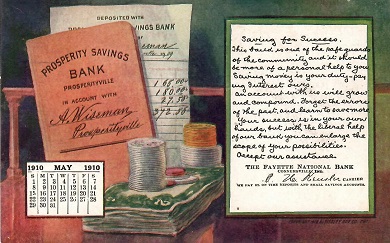 DEPOSITED WITH
SAVINGS BANK
Wiseman
PROSPERITY SAVINGS
BANK
PROSPERITYVILLE
IN ACCOUNT WITH
A. Wiseman
Prosperityville
165.00
180.00
27.50
372.50
1910 MAY 1910
S M T W T F S
1 2 3 4 5 6 7
8 9 10 11 12 13 14
15 16 17 18 19 20 21
22 23 24 25 26 27 28
29 30 31
Saving for Success.
This bank is one of the safe guards
of the community and it should
be more of a personal help to you
Saving money is your duty - pay
ing Interest ours.
An account with us will grow
and compound. Forget the errors
of the past, and learn to save more
Your success is in your own
hands, but with the liberal help
of your bank you can enlarge the
scope of your possibilities.
Accept our assistance.
THE FAYETTE NATIONAL BANK
CONNERSVILLE, IND.
CASHIER
WE PAY 3% ON TIME DEPOSITS AND SMALL SAVINGS ACCOUNTS.